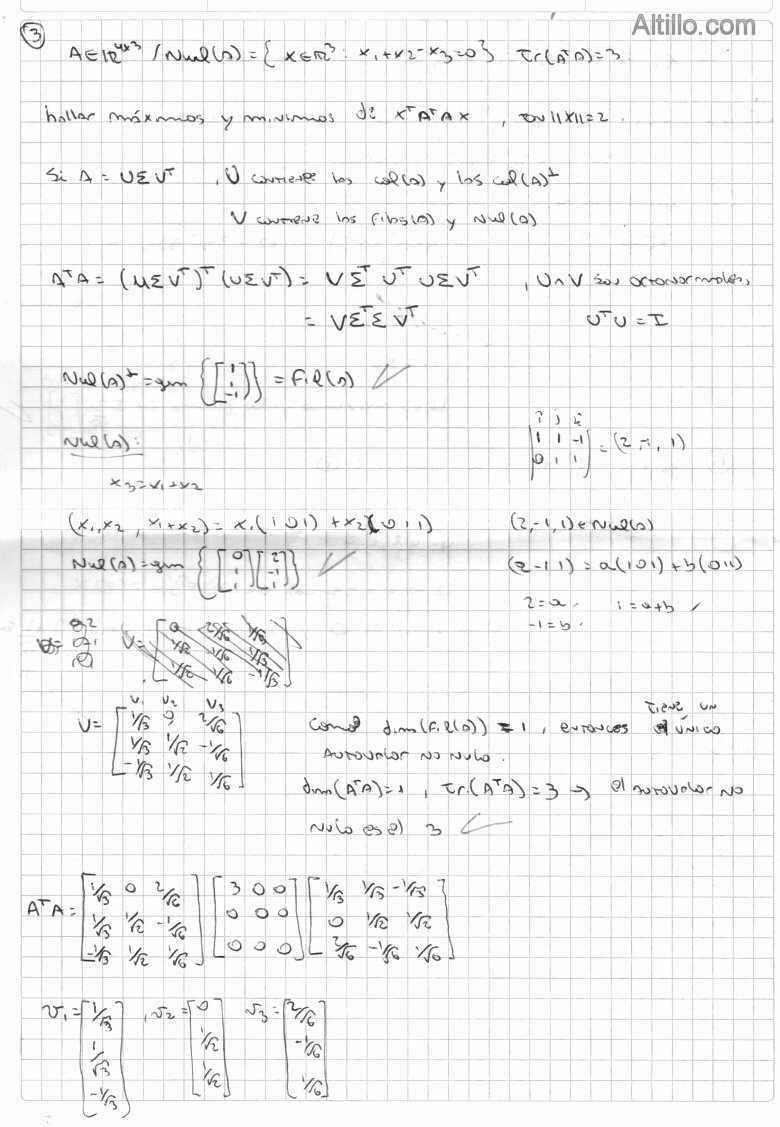 Altillo.com
③
A ∈ ℝ^{4x3} / Nul(A) = { x ∈ ℝ^3 : x_1+x_2-x_3=0 } Tr(A^T A)=3
hallar máximos y mínimos de x^T A^T A x , con ||x||=2.
Si A = UΣV^T , U contiene las col(A) y las col(A)^⊥
V contiene las Filas(A) y Nul(A)
A^T A = (UΣV^T)^T (UΣV^T) = VΣ^T U^T UΣV^T , U ∧ V son ortonormales,
= VΣ^TΣV^T U^T U = I
Nul(A)^⊥ = gen { [1 1 -1] } = Fil(A) ✓
Nul(A):
|i j k|
|1 1 -1| = (2, -1, 1)
|0 1 1|
x_3 = x_1+x_2
(x_1, x_2, x_1+x_2) = x_1(1 0 1) + x_2(0 1 1) (2,-1,1) ∈ Nul(A)
Nul(A) = gen { [0 1 1] [2 -1 1] } ✓ (2 -1 1) = a(1 0 1) + b(0 1 1)
2=a 1=a+b ✓
-1=b
V =
v_1 v_2 v_3
V = [1/√3 0 2/√6
1/√3 1/√2 -1/√6
-1/√3 1/√2 1/√6]
Como dim(Fil(A)) = 1, entonces tiene un único
autovalor no nulo.
dim(A^T A)=1, Tr.(A^T A)=3 → el autovalor no
nulo es el 3 ✓
A^T A = [1/√3 0 2/√6] [3 0 0] [1/√3 1/√3 -1/√3]
[1/√3 1/√2 -1/√6] [0 0 0] [0 1/√2 1/√2]
[-1/√3 1/√2 1/√6] [0 0 0] [2/√6 -1/√6 1/√6]
v_1 = [1/√3 1/√3 -1/√3] , v_2 = [0 1/√2 1/√2] v_3 = [2/√6 -1/√6 1/√6]